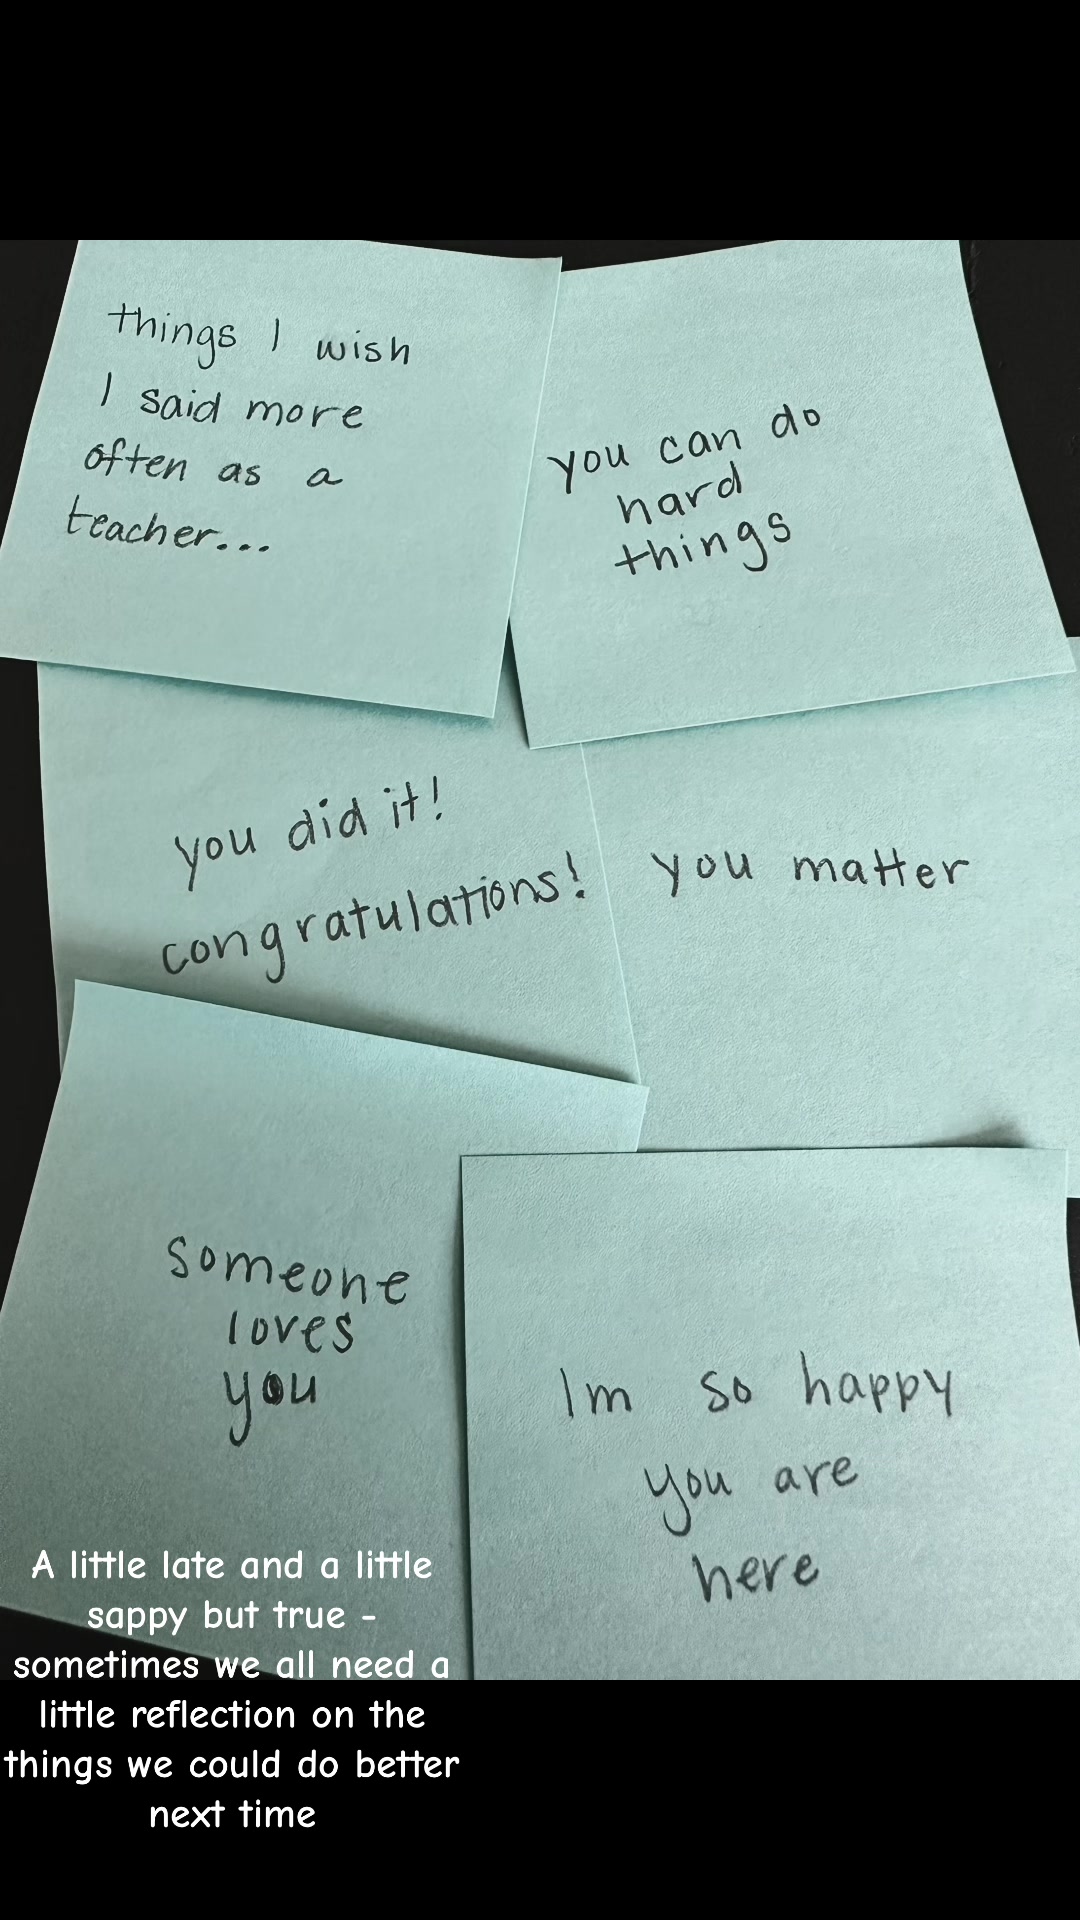 things I wish
I said more
often as a
teacher...
you can do
hard
things
you did it!
congratulations!
you matter
someone
loves
you
Im so happy
you are
here
A little late and a little
sappy but true -
sometimes we all need a
little reflection on the
things we could do better
next time